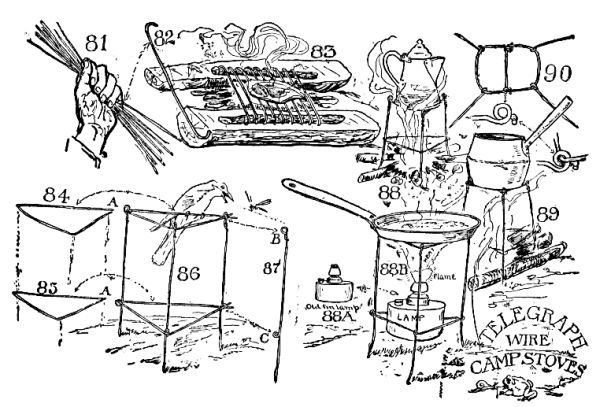 81
82
83
90
88
89
84
A
85
A
86
B
87
C
88B
Flame
LAMP
Old tin lamp
88A
TELEGRAPH
WIRE
CAMP STOVES